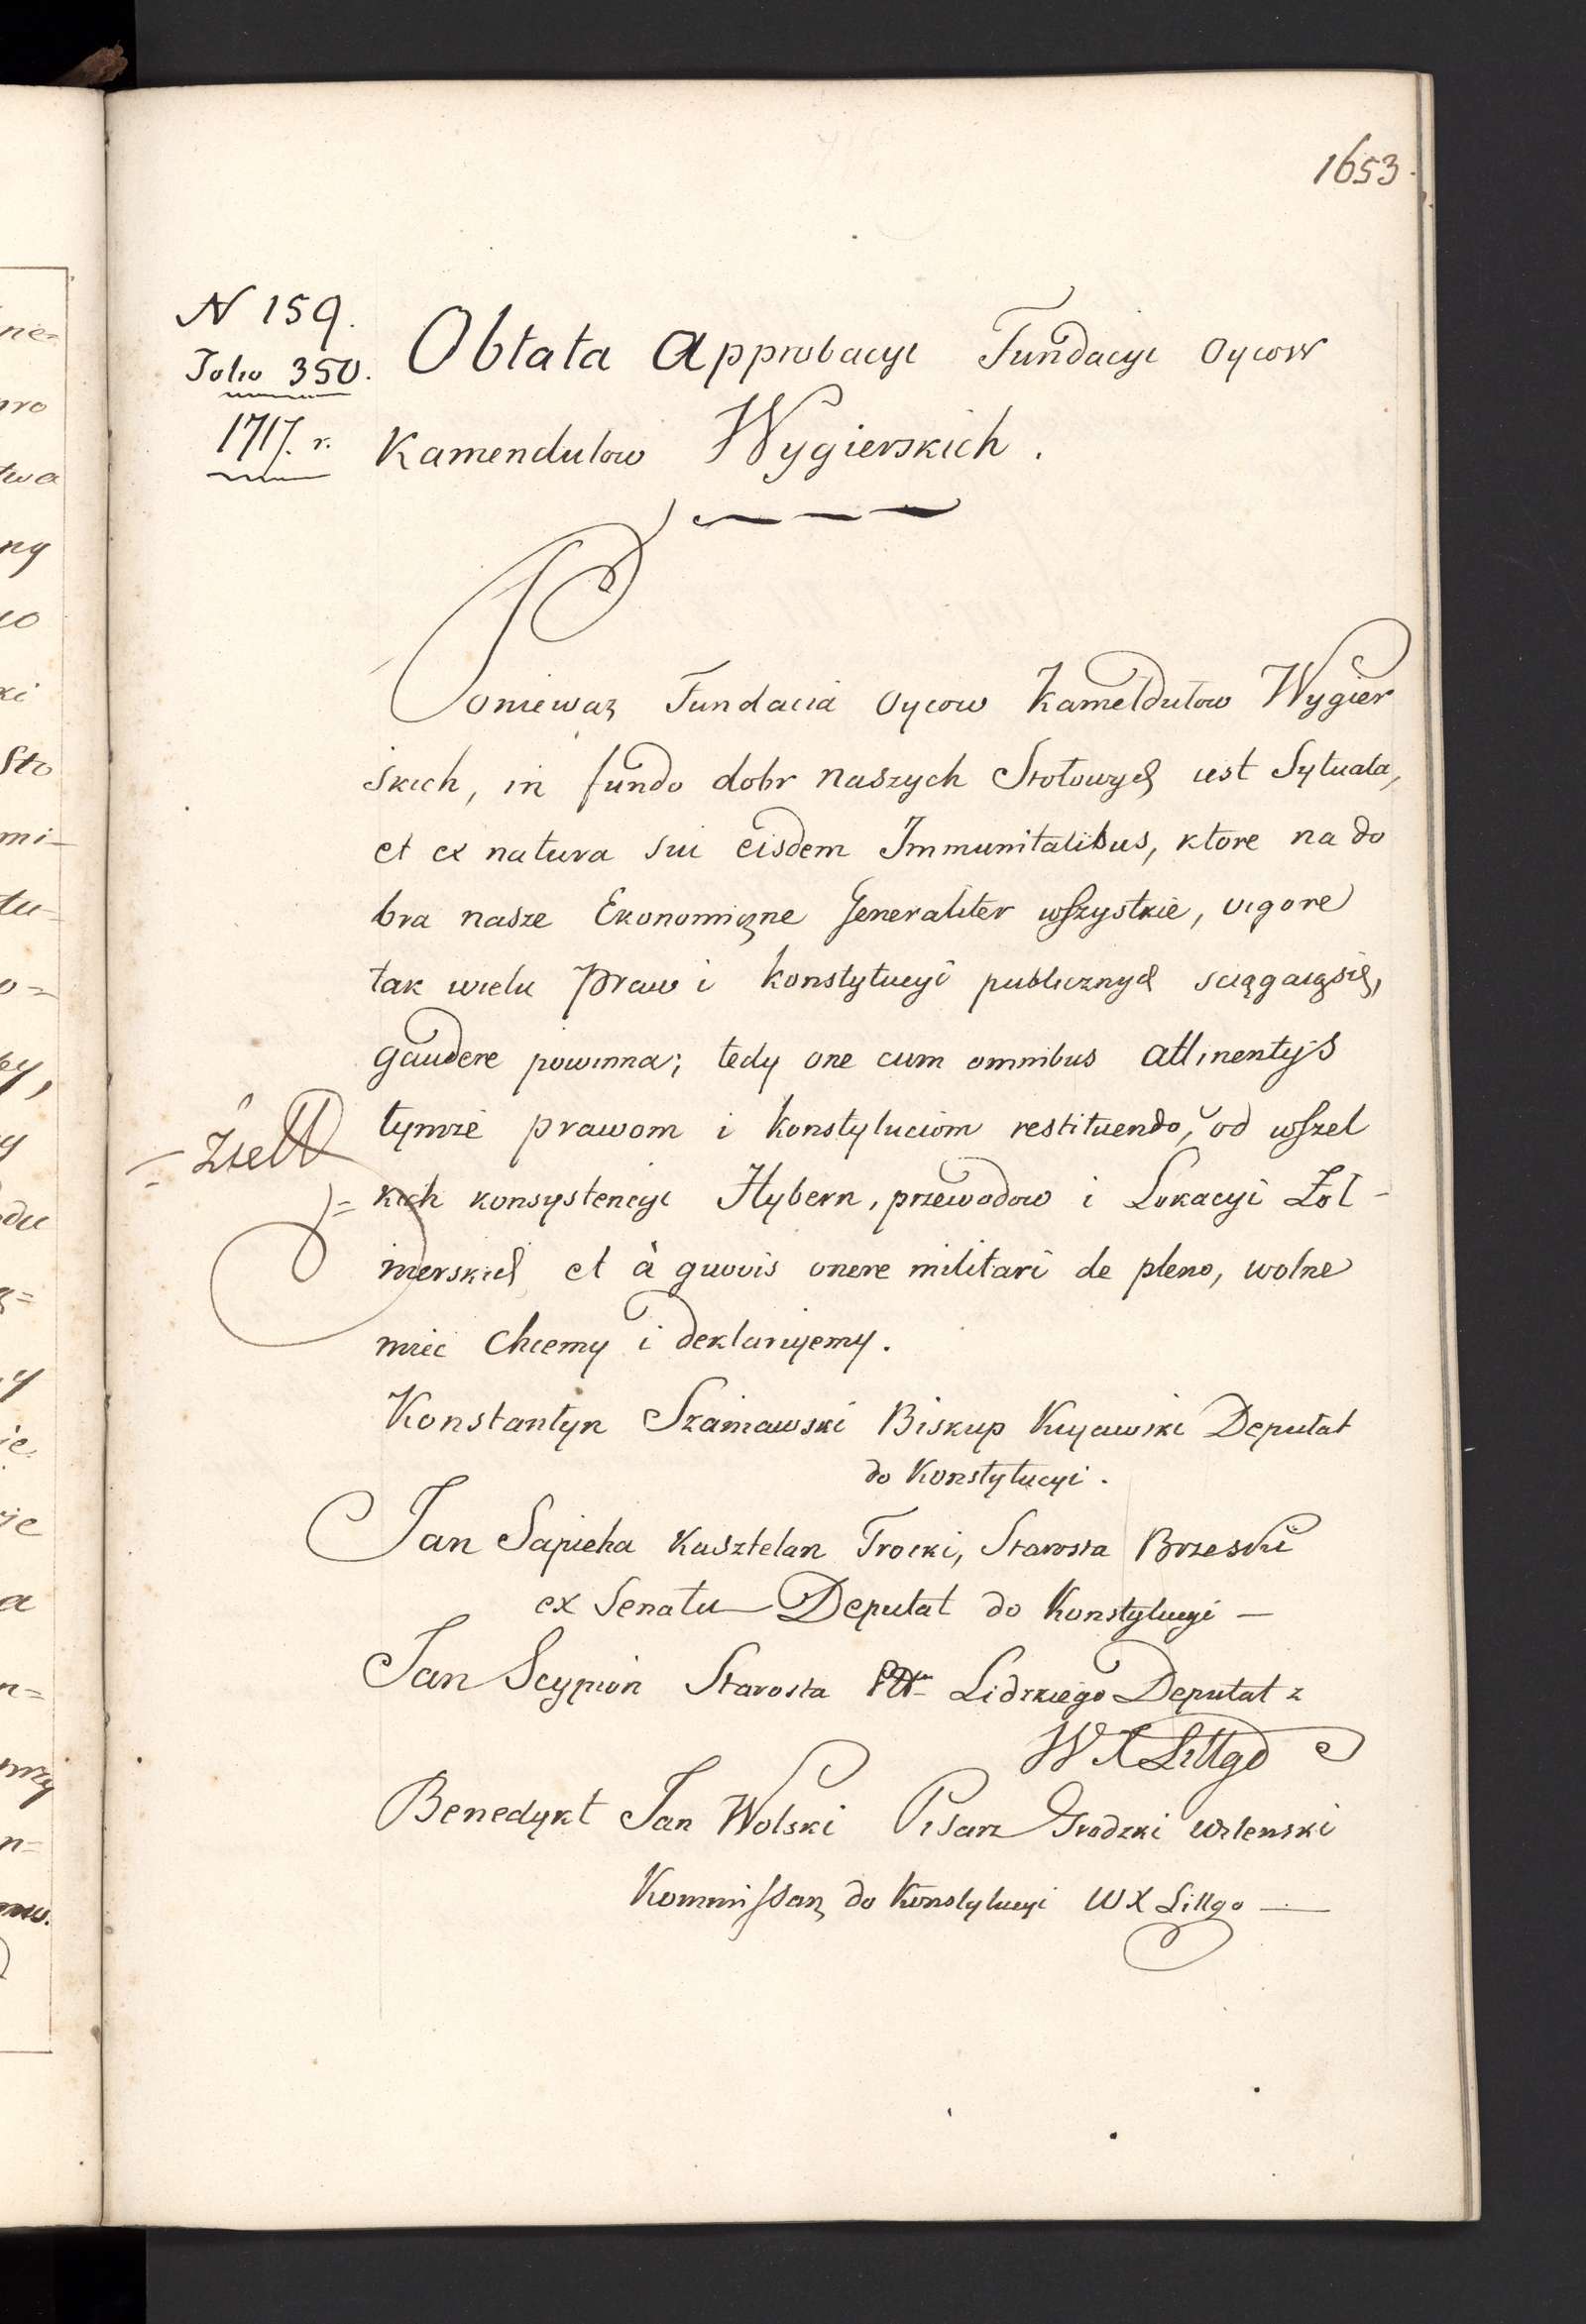 1653.
N 159.
Folio 350.
1717. r.
Obłata Approbacyi Fundacyi Oycow
Kamendulow Wygierskich.
Poniewaz Fundacia Oycow Kameldułow Wygier
skich, in fundo dobr naszych Stołowych iest Sytuata,
et ex natura sui eisdem Immunitatibus, ktore na do
bra nasze Ekonomiczne Generaliter wszystkie, vigore
tak wielu Praw i Konstytucyi publicznych sciągaią się,
gaudere powinna; tedy one cum omnibus attinentijs
tymże prawom i Konstytuciom restituendo, od wszel
kich konsystencyi Hybern, przewodow i Lokacyi Żoł-
nierskich et à quovis onere militari de pleno, wolne
miec Chcemy i deklaruiemy.
Konstantyn Szaniawski Biskup Kuyawski Deputat
do Konstytucyi.
Jan Sapieha Kasztelan Trocki, Starosta Brzeski
ex Senatu Deputat do Konstytucyi —
Jan Scypion Starosta Pttu Lidzkiego Deputat z
W X Littgo
Benedykt Jan Wolski Pisarz Grodzki Wilenski
Kommissarz do Konstytucyi W X Littgo —
nie=
pro
twa
ny
Sto
mi-
tu-